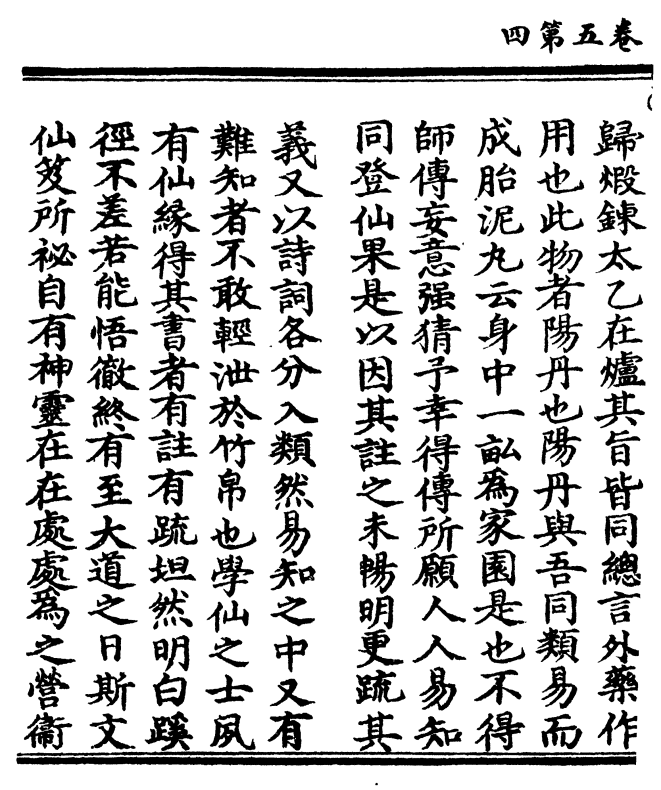 卷五第四
歸煅鍊太乙在爐其旨皆同總言外藥作
用也此物者陽丹也陽丹與吾同類易而
成胎泥丸云身中一畝為家園是也不得
師傳妄意强猜予幸得傳所願人人易知
同登仙果是以因其註之未暢明更疏其
義又以詩詞各分入類然易知之中又有
難知者不敢輕泄於竹帛也學仙之士夙
有仙緣得其書者有註有疏坦然明白蹊
徑不差若能悟徹終有至大道之日斯文
仙笈所祕自有神靈在在處處為之營衞